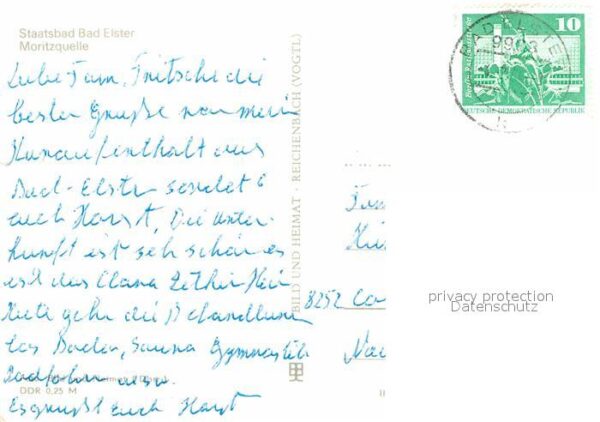 Staatsbad Bad Elster
Moritzquelle
Liebe Fam. Fritsche die
besten Grüße von mein
Kuraufenthalt aus
Bad-Elster sendet
euch Horst. Die Unter-
kunft ist seh schön es
ist das Clara Zetkin Hein
Heute geht die Behandlung
los Bäder, Sauna Gymnastik
Radfahrn usw.
DDR 0,25 M
Es grüßt Euch Horst
BILD UND HEIMAT · REICHENBACH (VOGTL)
10
DEUTSCHE DEMOKRATISCHE REPUBLIK
BAD ELSTER
9903
8252
privacy protection
Datenschutz